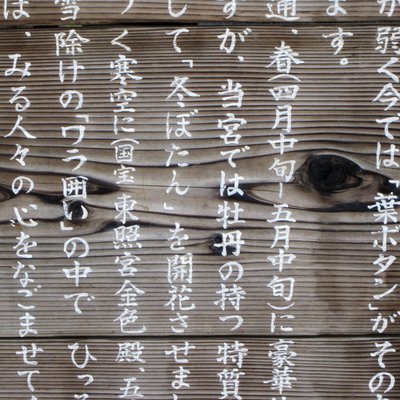 が弱く今では「葉ボタン」がその
ます。
通、春(四月中旬-五月中旬)に豪華
すが、当宮では牡丹の持つ特質
して、「冬ぼたん」を開花させまし
く寒空に(国宝)東照宮金色殿、五
雪除けの「ワラ囲い」の中でひっ
は、みる人々の心をなごませて